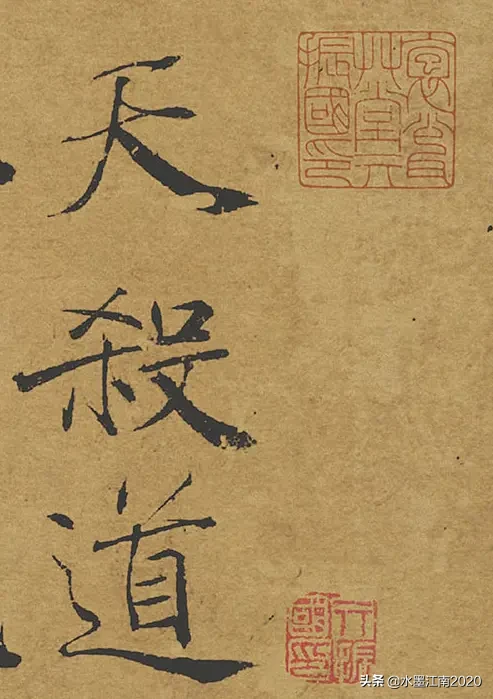 天殺道
头条 @水墨江南2020